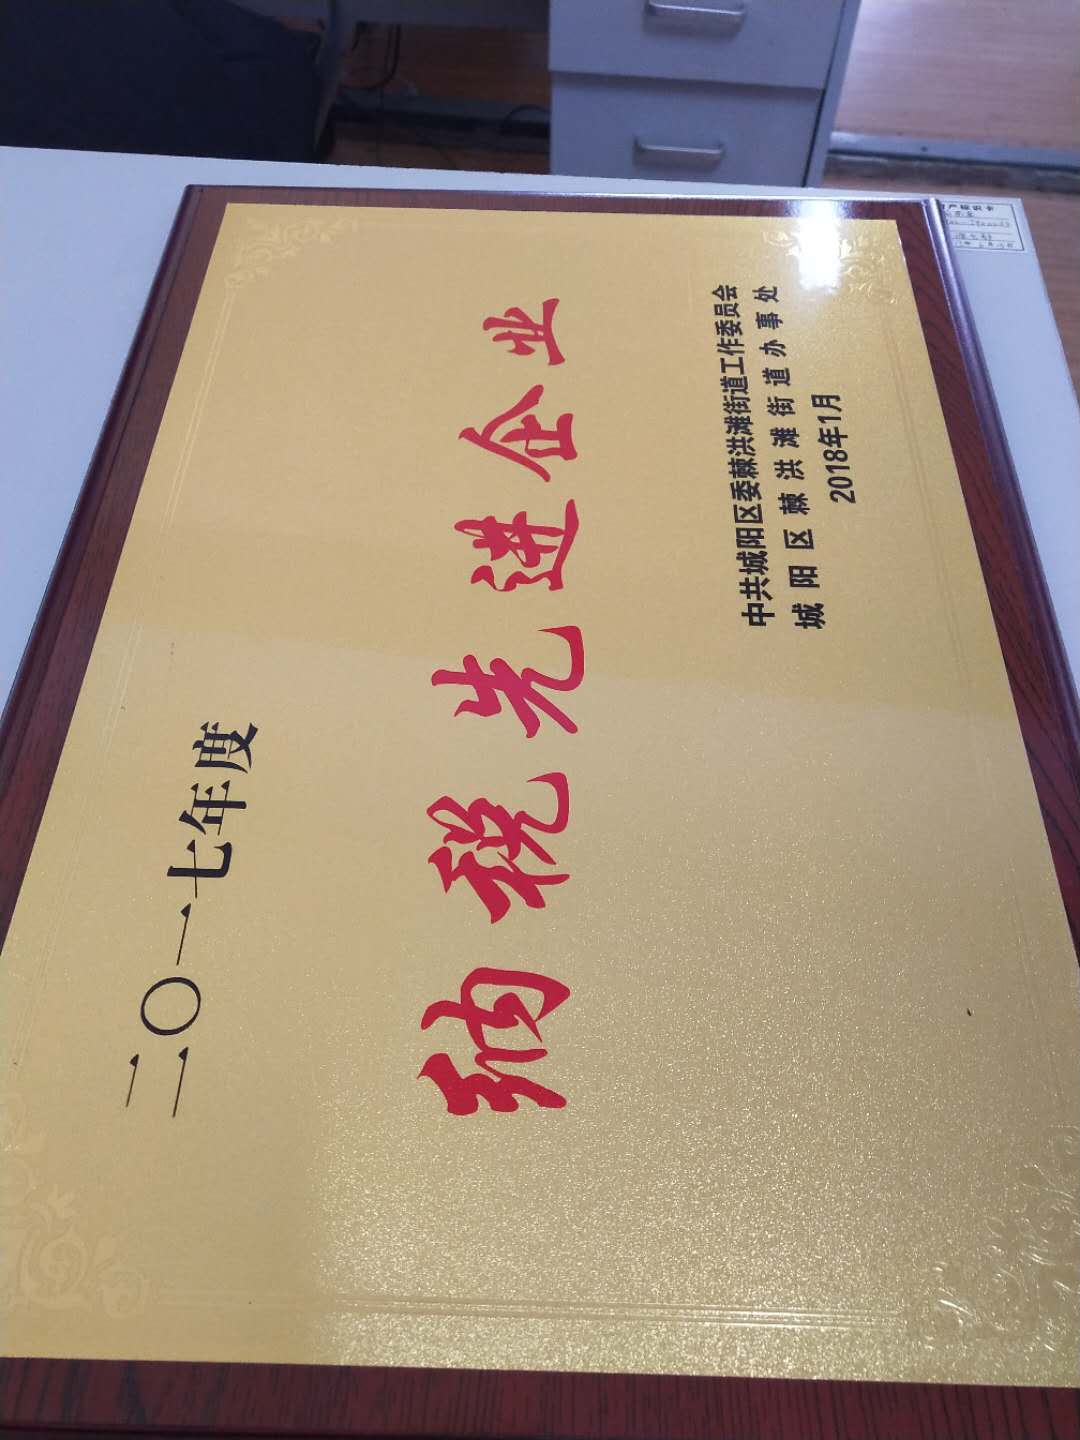 二〇一七年度
纳税先进企业
中共城阳区委棘洪滩街道工作委员会
城阳区棘洪滩街道办事处
2018年1月